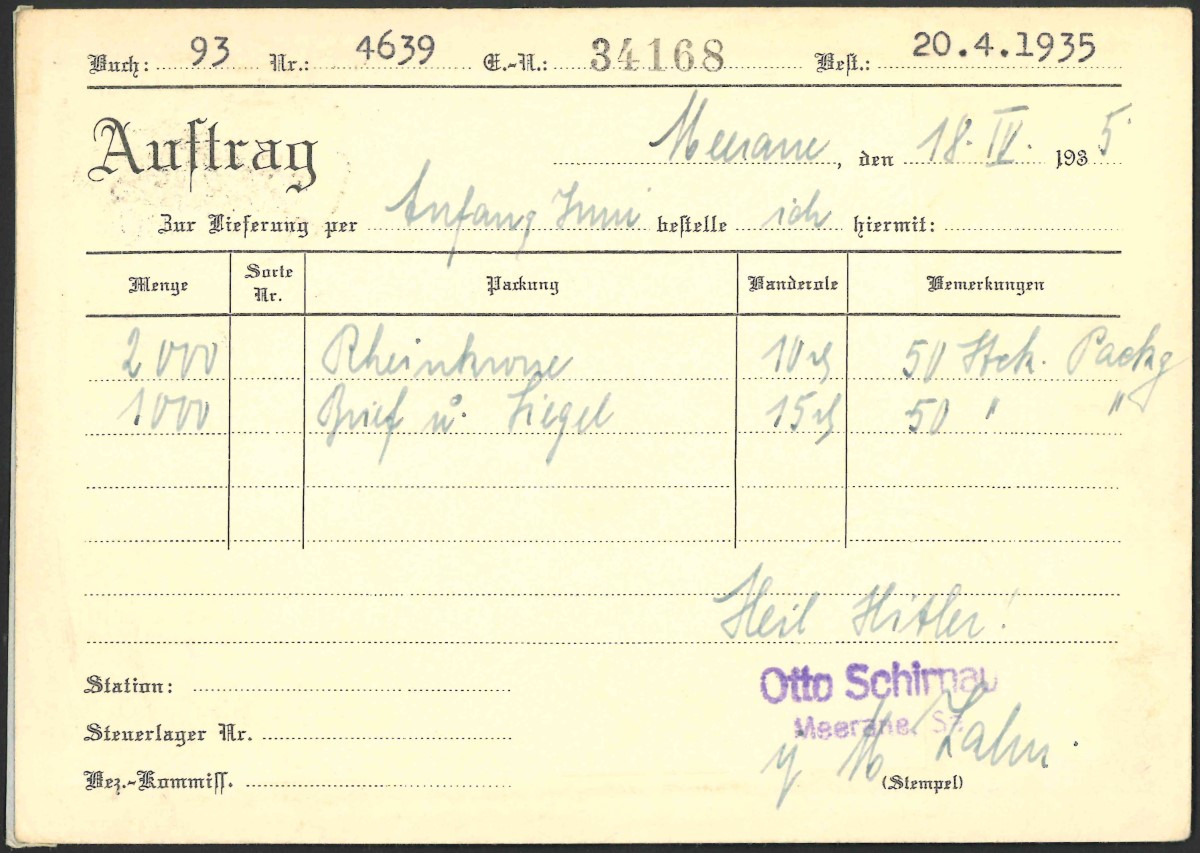 Buch: 93 Nr.: 4639 E.-N.: 34168 Best.: 20.4.1935
Auftrag
Meerane, den 18. IV. 1935
Zur Lieferung per Anfang Juni bestelle ich hiermit:
Menge Sorte Nr. Packung Banderole Bemerkungen
2000 Rheinkrone 10 50 Stck. Packg
1000 Brief u. Siegel 15 50 " "
Heil Hitler!
Station:
Otto Schirnau
Meerane
Steuerlager Nr.
Zahn
Bez.-Kommiss.
(Stempel)